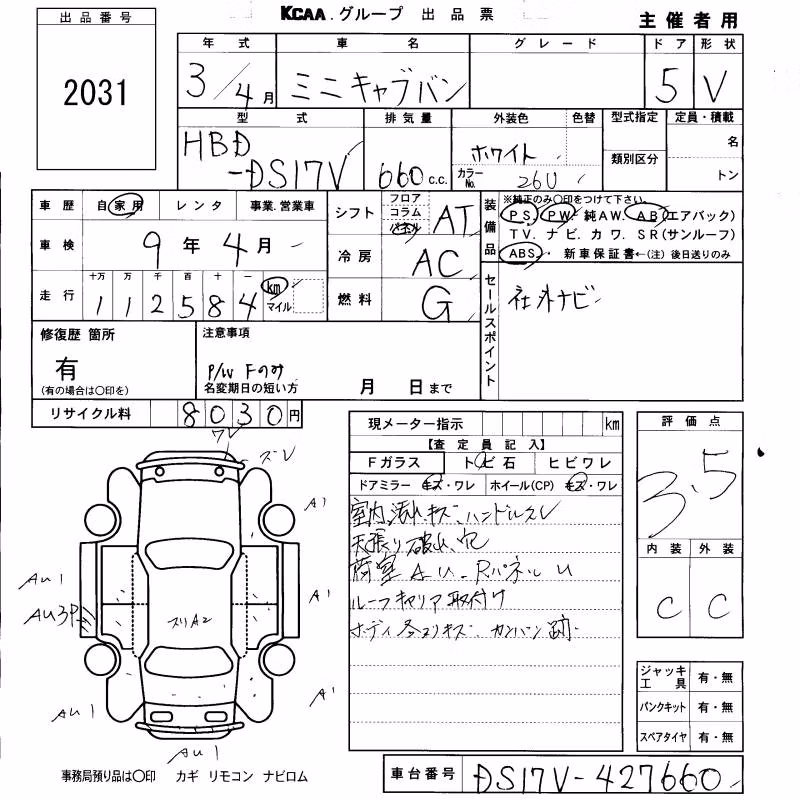 出品番号
2031
KCAA.グループ 出品票
主催者用
年式 車名 グレード ドア 形状
3/4月 ミニキャブバン 5 V
型式 排気量 外装色 色替 型式指定 定員・積載
HBD
-DS17V 660c.c. ホワイト 名
カラーNo. 26U 類別区分 トン
車歴 自家用 レンタ 事業.営業車
車検 9年4月
走行 十万 万 千 百 十 一
1 1 2 5 8 4 km マイル
シフト フロア コラム パネル AT
冷房 AC
燃料 G
装備品 ※純正のみ○印をつけて下さい。
PS. PW. 純AW. AB(エアバック)
TV. ナビ. カワ. SR(サンルーフ)
ABS. 新車保証書←(注)後日送りのみ
セールスポイント
社外ナビ
修復歴 箇所
有
(有の場合は○印を)
注意事項
P/W Fのみ
名変期日の短い方 月 日まで
リサイクル料 8030円
現メーター指示 km
【査定員記入】
Fガラス トビ石 ヒビワレ
ドアミラー キズ・ワレ ホイール(CP) キズ・ワレ
室内汚れキズ、ハンドルスレ
天張り破れ、穴
荷室AU、RパネルU
ルーフキャリア取付け
ボディ各部キズ、カンバン跡
評価点
3.5
内装 外装
C C
ジャッキ工具 有・無
パンクキット 有・無
スペアタイヤ 有・無
ワレ
ズレ
A1
AU1
A1
AU3P
スリA2
A1
AU1
AU1
事務局預り品は○印 カギ リモコン ナビロム
車台番号 DS17V-427660